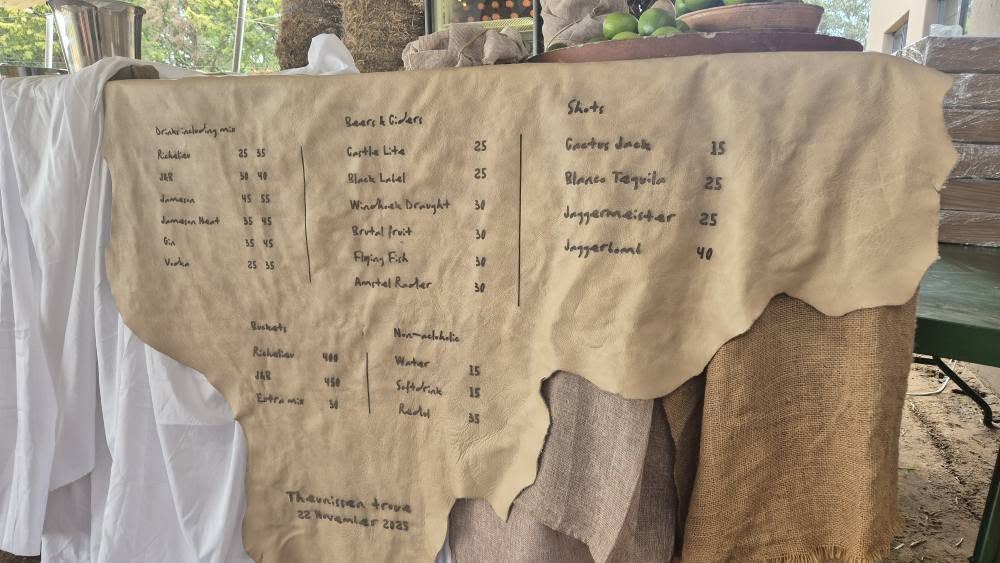 Drinks including mix
Richelieu 25 35
J&B 30 40
Jameson 45 55
Jameson Neat 35 45
Gin 35 45
Vodka 25 35
Beers & Ciders
Castle Lite 25
Black Label 25
Windhoek Draught 30
Brutal fruit 30
Flying Fish 30
Amstel Radler 30
Shots
Cactus Jack 15
Blanco Tequila 25
Jaggermeister 25
Jaggerbomb 40
Buckets
Richelieu 400
J&B 450
Extra mix 30
Non-acloholic
Water 15
Softdrink 15
35
Theunissen troue
22 November 2025